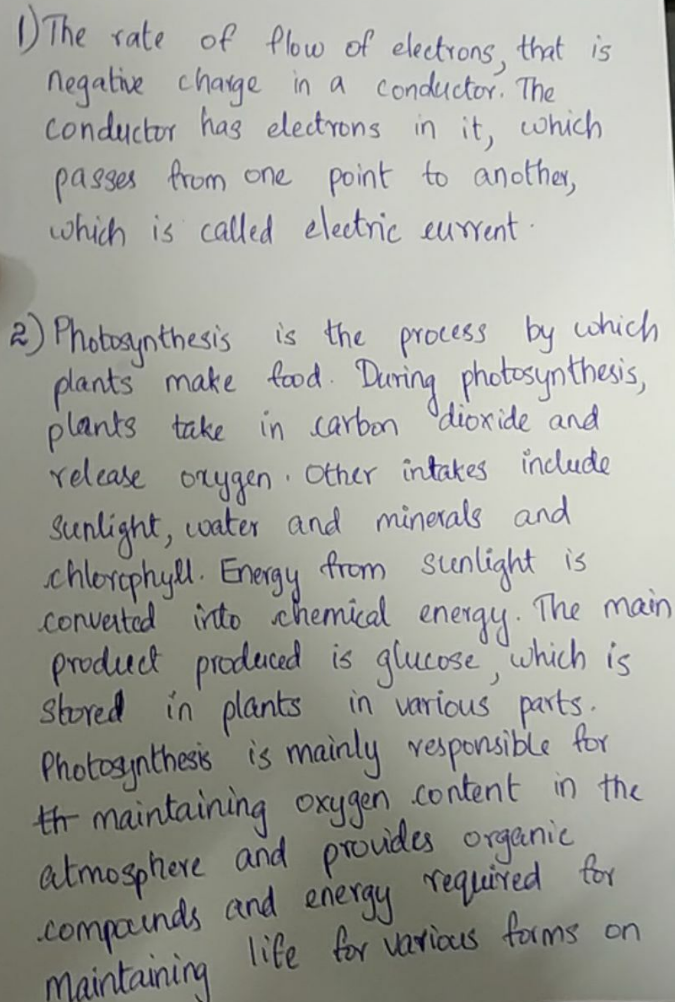 1) The rate of flow of electrons, that is
negative charge in a conductor. The
conductor has electrons in it, which
passes from one point to another,
which is called electric current.
2) Photosynthesis is the process by which
plants make food. During photosynthesis,
plants take in carbon dioxide and
release oxygen. Other intakes include
sunlight, water and minerals and
chlorophyll. Energy from sunlight is
converted into chemical energy. The main
product produced is glucose, which is
stored in plants in various parts.
Photosynthesis is mainly responsible for
th maintaining oxygen content in the
atmosphere and provides organic
compounds and energy required for
maintaining life for various forms on